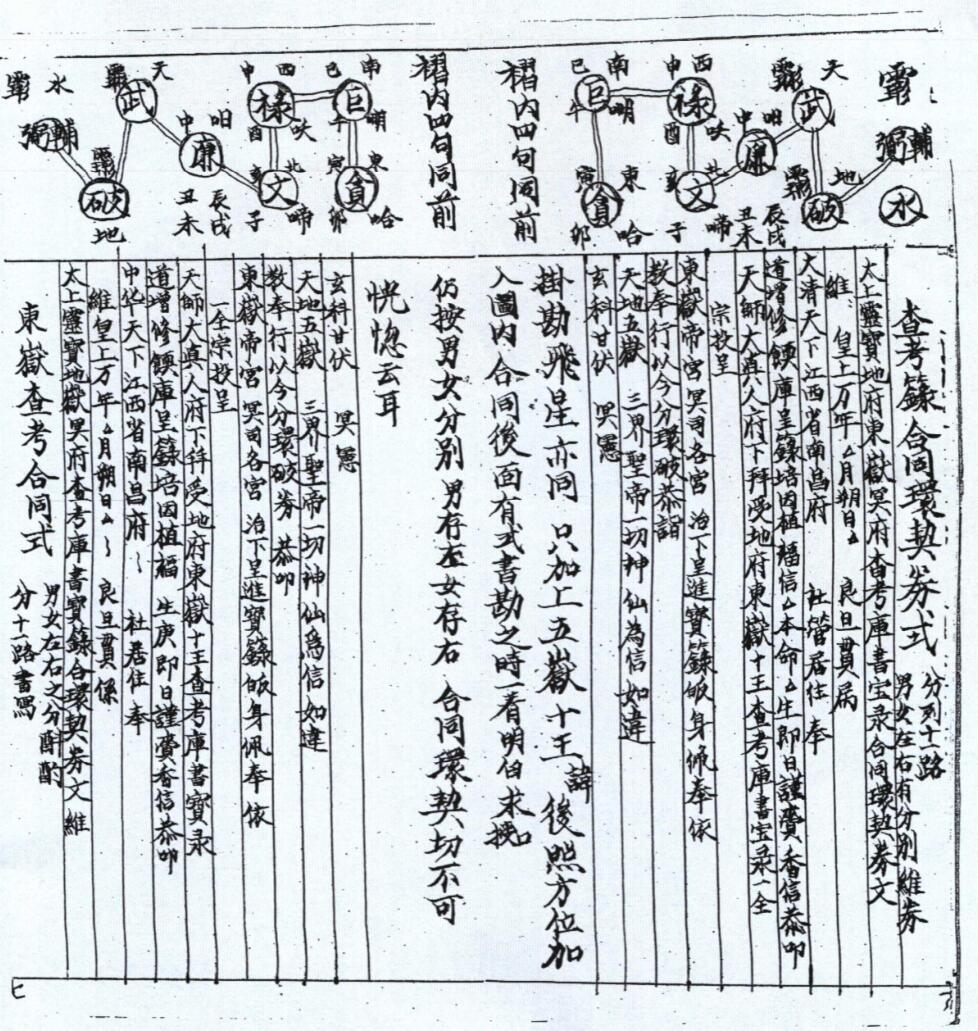 查考籙合同環契券式
分列十一路
男女左右有分別維券
太上靈寶地府東嶽冥府查考庫書宝录合同環契券文
維 皇上万年△月朔日△ 良旦貫居
大清天下江西省南昌府 社管居住奉
道增修餽庫呈籙培因植福信△本命△生即日謹賫香信恭叩
天師大真人府下拜受地府東嶽十王查考庫書宝录一全
宗投呈
東嶽帝宮冥司各宮 治下呈進寶籙皈身佩奉依
教奉行以今分環破恭詣
天地五嶽 三界聖帝一切神仙為信如違
玄科甘伏 冥憲
掛勘飛星亦同 只加上五嶽十王諱 後照方位加
入圖內合同後面有式書勘之時一看明白求
仍按男女分別 男存左女存右 合同環契切不可
恍惚云耳
玄科甘伏 冥憲
天地五嶽 三界聖帝一切神仙爲信如違
教奉行以今分環破券 恭叩
東嶽帝宮 冥司各宮 治下呈進寶籙皈身佩奉依
一全宗投呈
天師大真人府下拜受地府東嶽十王查考庫書寶录
道增修餽庫呈籙培因植福 生庚即日謹賫香信恭叩
中华天下江西省南昌府 社居住 奉
維皇上万年△月朔日△ 良旦貫係
太上靈寶地嶽冥府查考庫書寶錄合環契券文維
東嶽查考合同式
男女左右之分酌
分十一路書寫
輔 弼 水
天 武
地 破
廉 中 辰戌 丑未
西 申 禄 酉
北 文 亥 啼 子
南 巳 巨 午 明
東 寅 貪 卯 哈
褶内四句同前
褶内四句同前
南 巳 巨 午 明
東 寅 貪 卯 哈
西 申 禄 酉
北 文 亥 啼 子
中 廉 辰戌 丑未
天 武
破 地
水
弼 輔
七